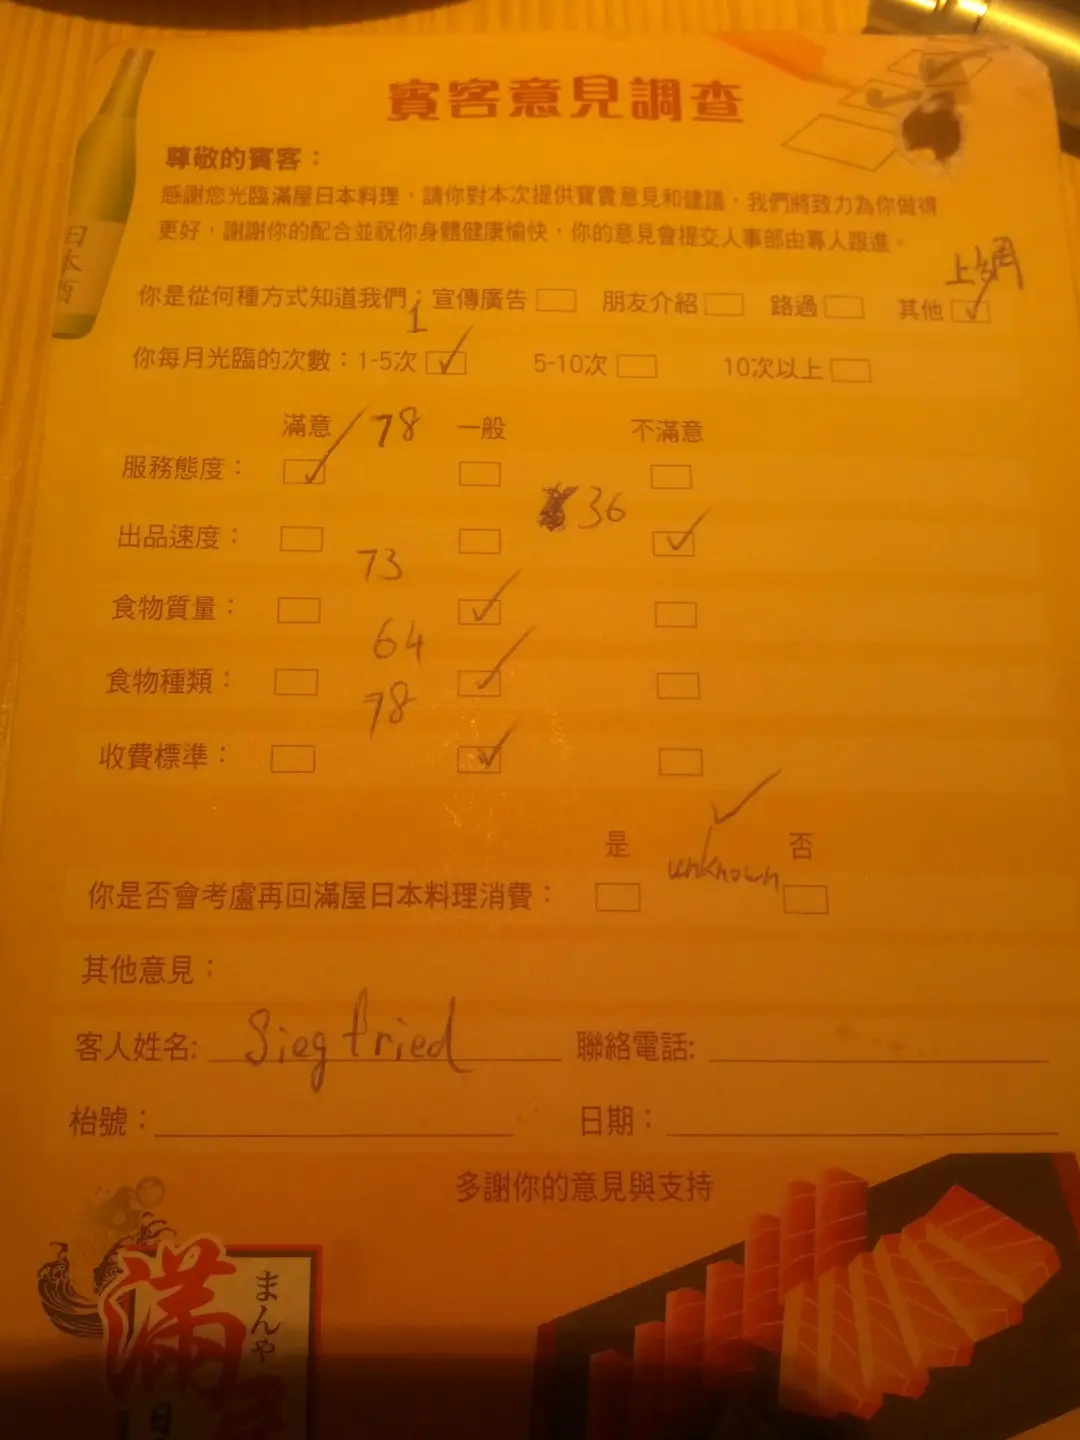 賓客意見調查
尊敬的賓客：
感謝您光臨滿屋日本料理，請你對本次提供寶貴意見和建議，我們將致力為你做得
更好，謝謝你的配合並祝你身體健康愉快，你的意見會提交人事部由專人跟進。
日本酒
上網
你是從何種方式知道我們：宣傳廣告 朋友介紹 路過 其他 ✓
1
你每月光臨的次數：1-5次 ✓ 5-10次 10次以上
滿意 78 一般 不滿意
服務態度： ✓
36
出品速度： ✓
73
食物質量： ✓
64
食物種類： ✓
78
收費標準： ✓
✓
是 unknown 否
你是否會考慮再回滿屋日本料理消費：
其他意見：
客人姓名: Siegfried 聯絡電話:
枱號： 日期：
多謝你的意見與支持
まんや
滿屋
日